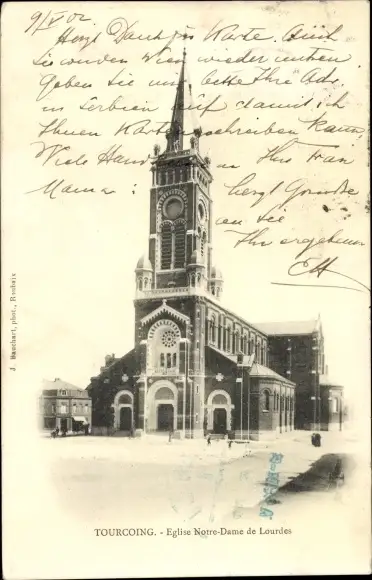 9/V 02
Herzl Dank für Karte. Auch
Sie von den Wien wieder mitten
Geben Sie uns bitte Ihre Adr
in Serbien auf damit ich
Ihnen Karten schreiben kann
Viele an Ihre Frau
Mama: herzl Grüße
an Sie
Ihr ergebener
J. Bauchart, phot., Roubaix
TOURCOING. - Eglise Notre-Dame de Lourdes